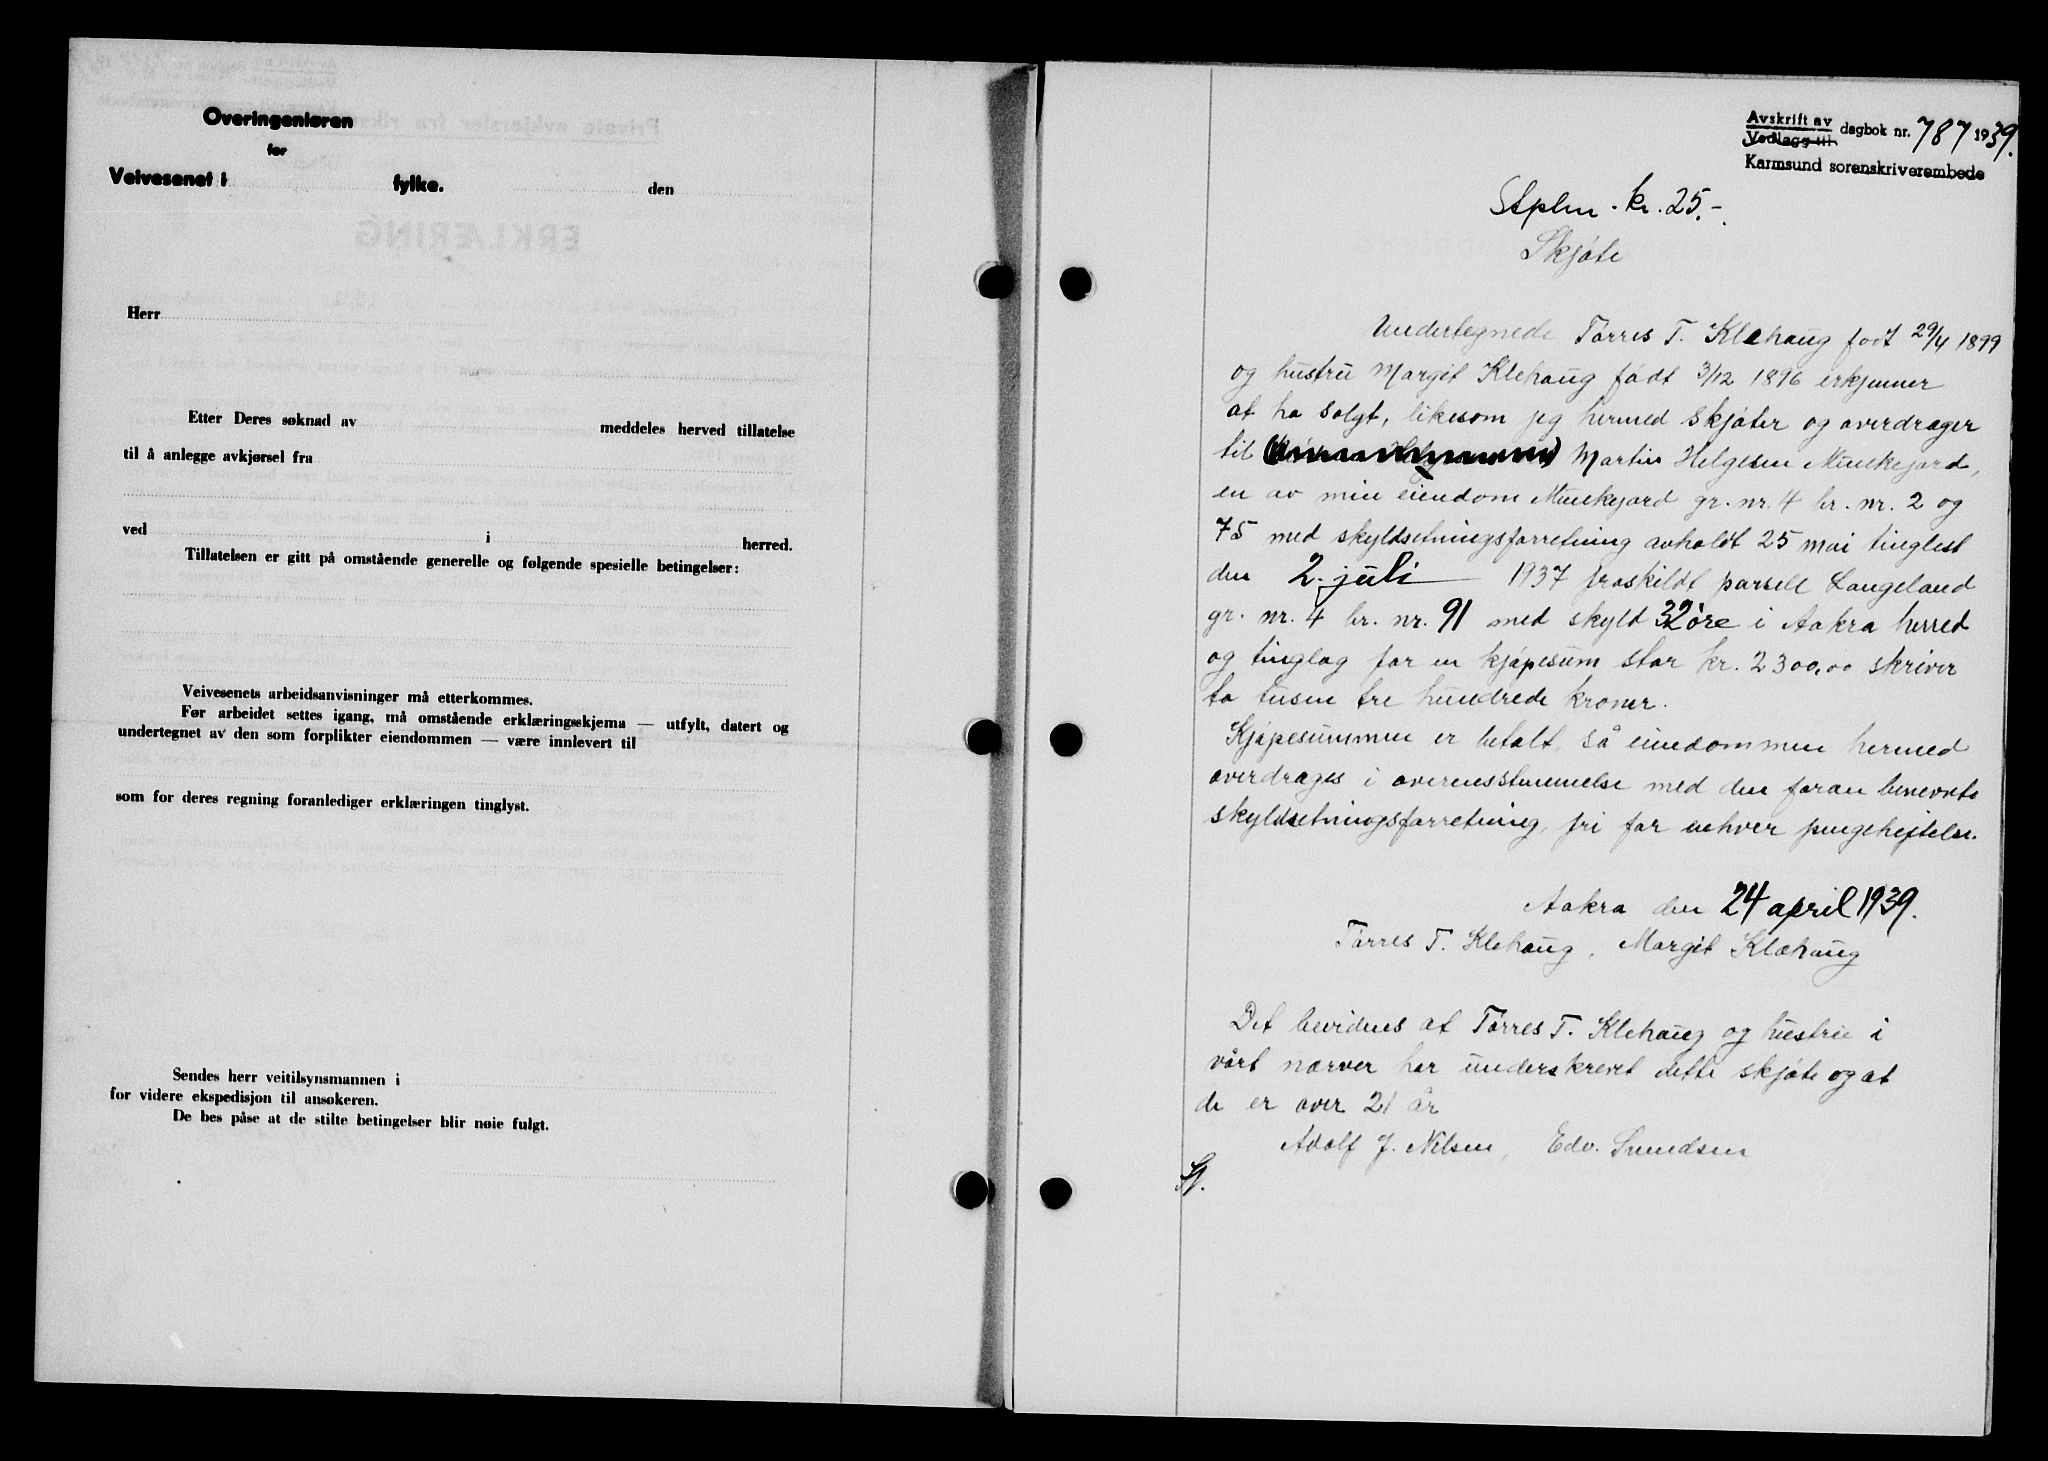 Overingeniøren
for
Veivesenet i fylke. den
Herr
Etter Deres søknad av meddeles herved tillatelse
til å anlegge avkjørsel fra
ved i herred.
Tillatelsen er gitt på omstående generelle og følgende spesielle betingelser:
Veivesenets arbeidsanvisninger må etterkommes.
Før arbeidet settes igang, må omstående erklæringsskjema — utfylt, datert og
undertegnet av den som forplikter eiendommen — være innlevert til
som for deres regning foranlediger erklæringen tinglyst.
Sendes herr veitilsynsmannen i
for videre ekspedisjon til ansøkeren.
De bes påse at de stilte betingelser blir nøie fulgt.
Avskrift av
Vedlegg til dagbok nr. 787 1939.
Karmsund sorenskriverembede
Stplm. kr. 25.-
Skjøte
Undertegnede Tørres T. Klehaug født 29/4 1899
og hustru Margit Klehaug født 3/12 1896 erkjenner
at ha solgt, likesom jeg hermed skjøter og overdrager
til Martin Helgesen Munkejord,
en av min eiendom Munkejord gr. nr. 4 br. nr. 2 og
75 med skyldsetningsforretning avholdt 25 mai tinglest
den 2. juli 1937 fraskildt parsell Langeland
gr. nr. 4 br. nr. 91 med skyld 32 øre i Aakra herred
og tinglag for en kjøpesum stor kr. 2300,00 skriver
to tusen tre hundrede kroner.
Kjøpesummen er betalt, så eiendommen hermed
overdrages i overensstemmelse med den foran benevnte
skyldsetningsforretning, fri for enhver pengeheftelse.
Aakra den 24 april 1939.
Tørres T. Klehaug, Margit Klæhaug
Det bevidnes at Tørres T. Klehaug og hustru i
vårt nærver har underskrevet dette skjøte og at
de er over 21 år
Adolf J. Nilsen, Edv. Svendsen